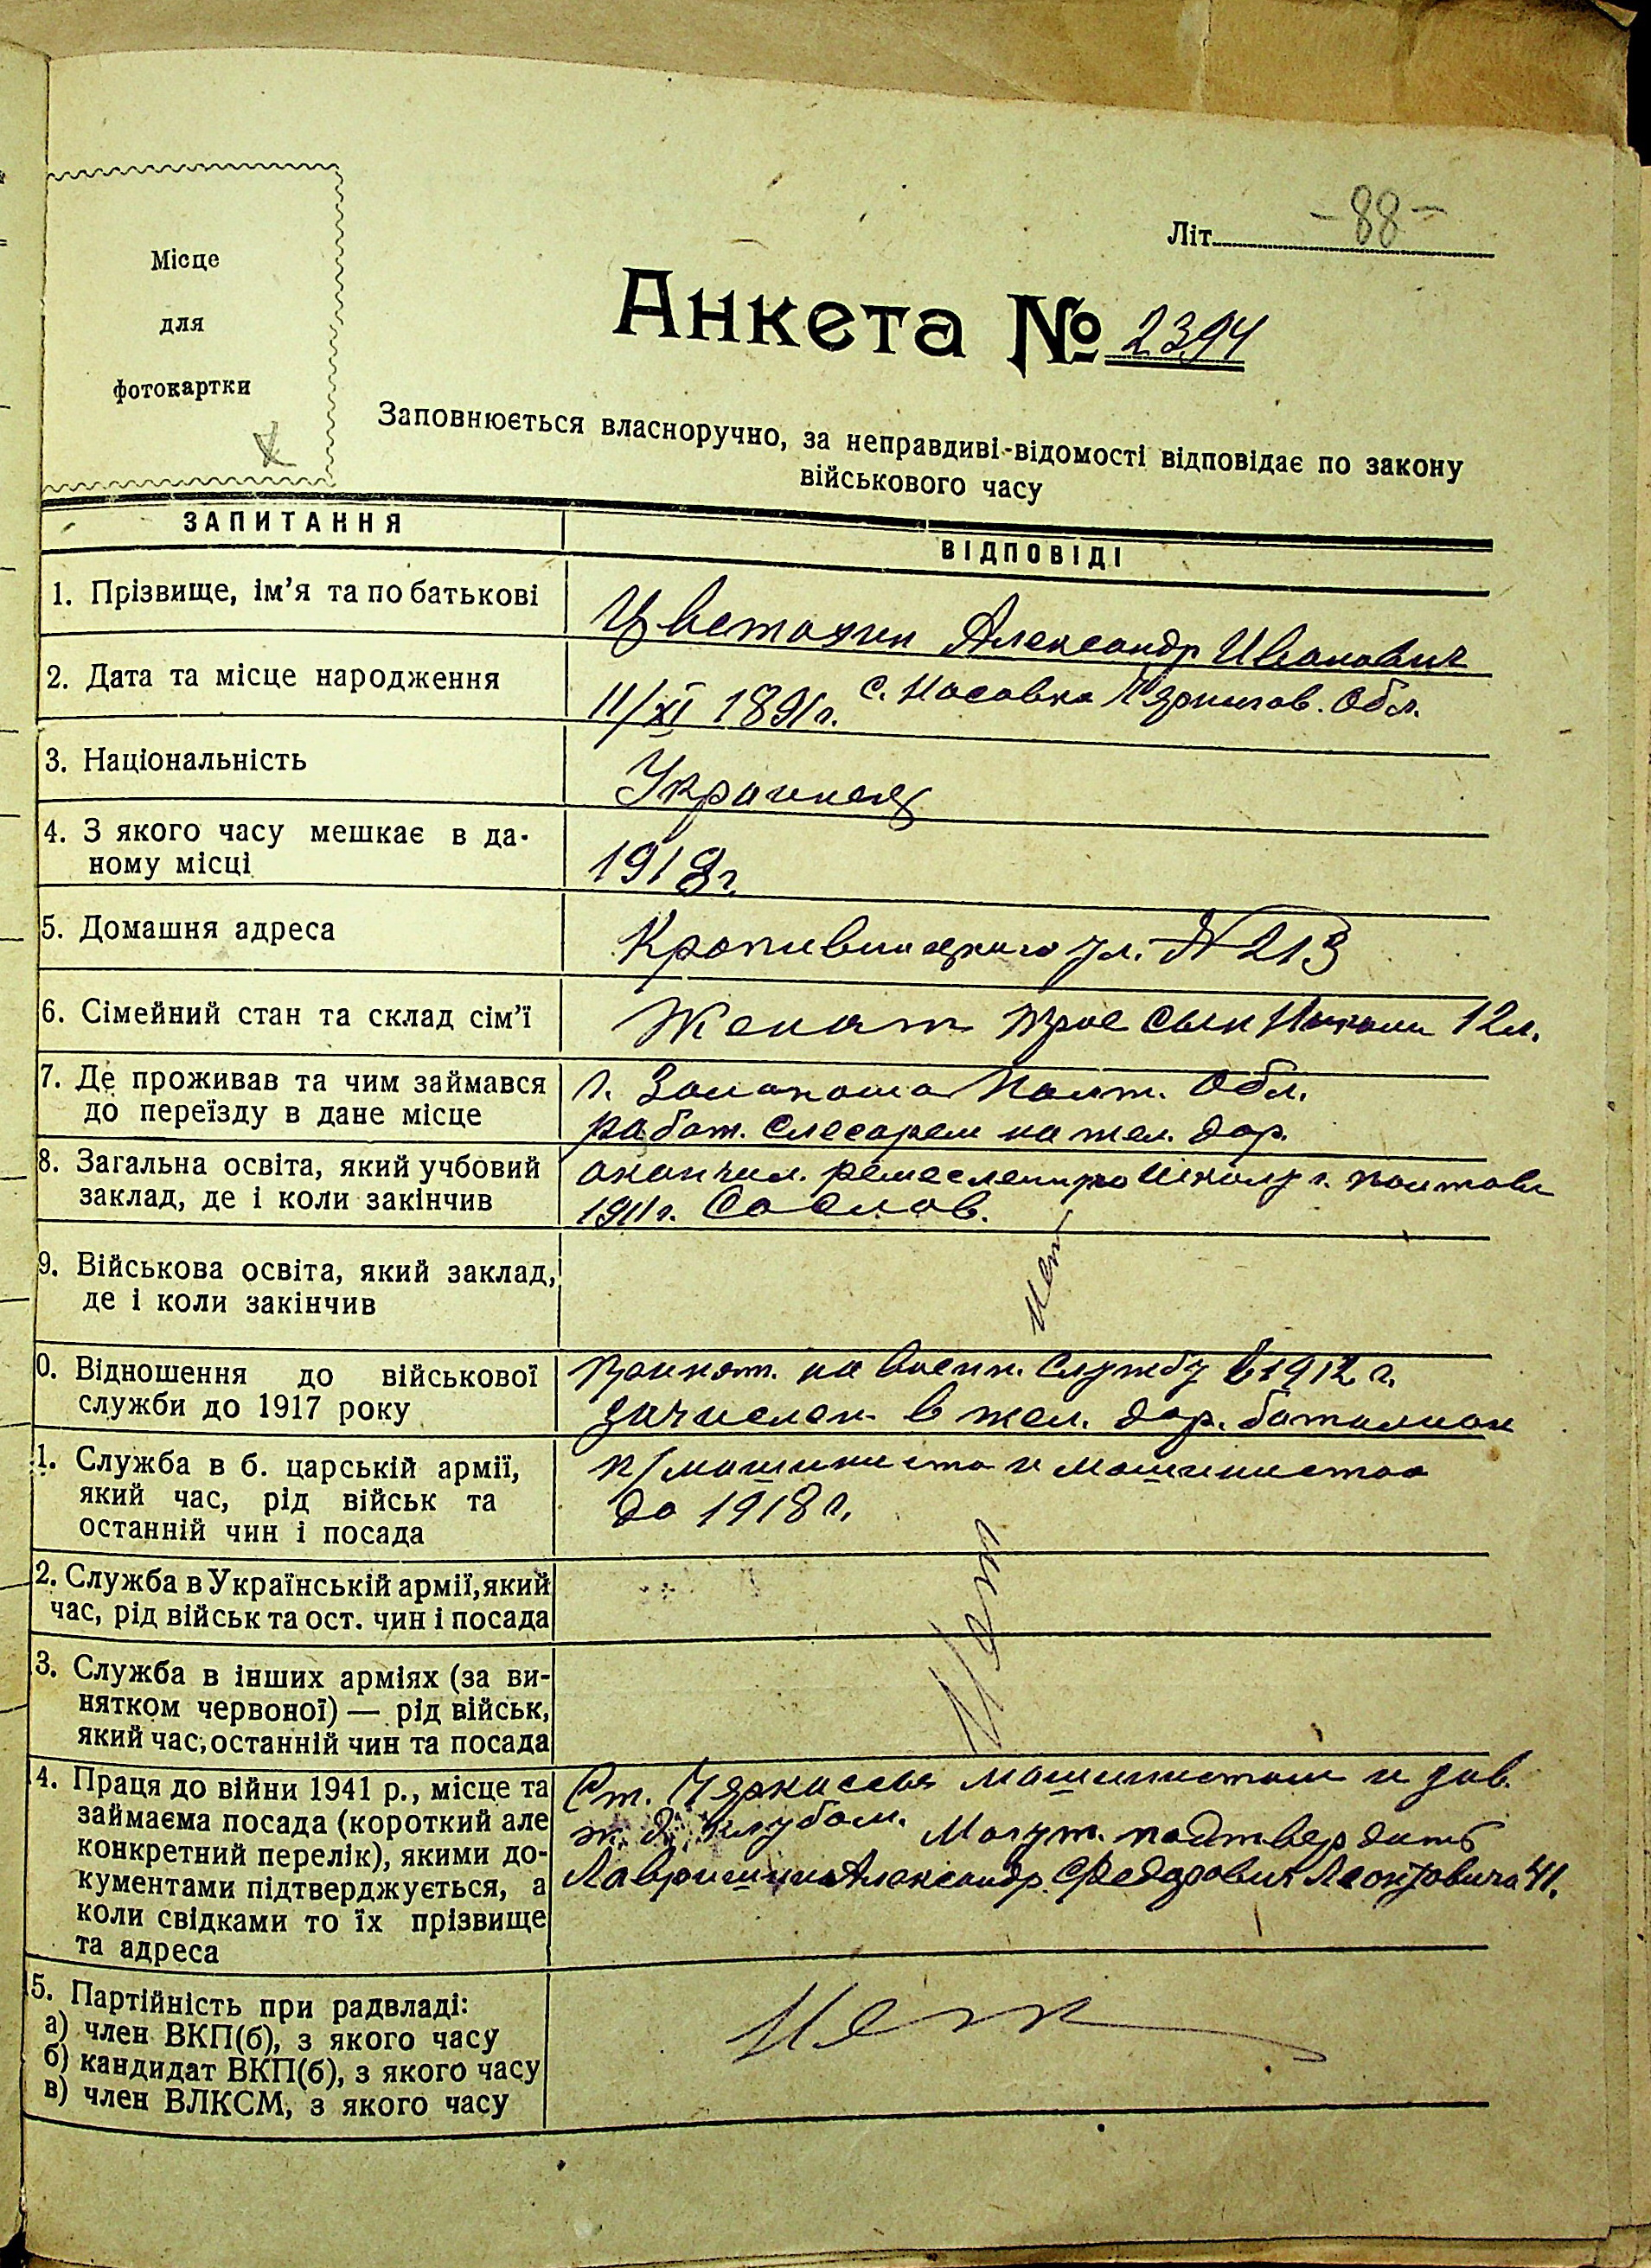 Літ. -88-
Місце
для
фотокартки
Анкета № 2394
Заповнюється власноручно, за неправдиві-відомості відповідає по закону
військового часу
ЗАПИТАННЯ
ВІДПОВІДІ
1. Прізвище, ім'я та по батькові
Александр Иванович
2. Дата та місце народження
11/XI 1891г. с. Носовка Чернигов. Обл.
3. Національність
Украинец
4. З якого часу мешкає в да-
ному місці
1918г.
5. Домашня адреса
Кропивницкого ул. № 213
6. Сімейний стан та склад сім'ї
Женат трое сын 12л.
7. Де проживав та чим займався
до переїзду в дане місце
г. Полт. Обл.
работ. слесарем на жел. дор.
8. Загальна освіта, який учбовий
заклад, де і коли закінчив
окончил. ремесленную школу г. Полтава
1911г.
9. Військова освіта, який заклад,
де і коли закінчив
Нет
0. Відношення до військової
служби до 1917 року
принят. на военн. службу в 1912 г.
зачислен в жел. дор. баталион
1. Служба в б. царській армії,
який час, рід військ та
останній чин і посада
п/машиниста и машинистом
до 1918 г.
2. Служба в Українській армії, який
час, рід військ та ост. чин і посада
3. Служба в інших арміях (за ви-
нятком червоної) — рід військ,
який час, останній чин та посада
Нет
4. Праця до війни 1941 р., місце та
займаєма посада (короткий але
конкретний перелік), якими до-
кументами підтверджується, а
коли свідками то їх прізвище
та адреса
Ст. Черкассы машинистом и зав.
ж. д. клубом. Могут. подтвердить
Александр Федорович
5. Партійність при радвладі:
а) член ВКП(б), з якого часу
б) кандидат ВКП(б), з якого часу
в) член ВЛКСМ, з якого часу
Нет